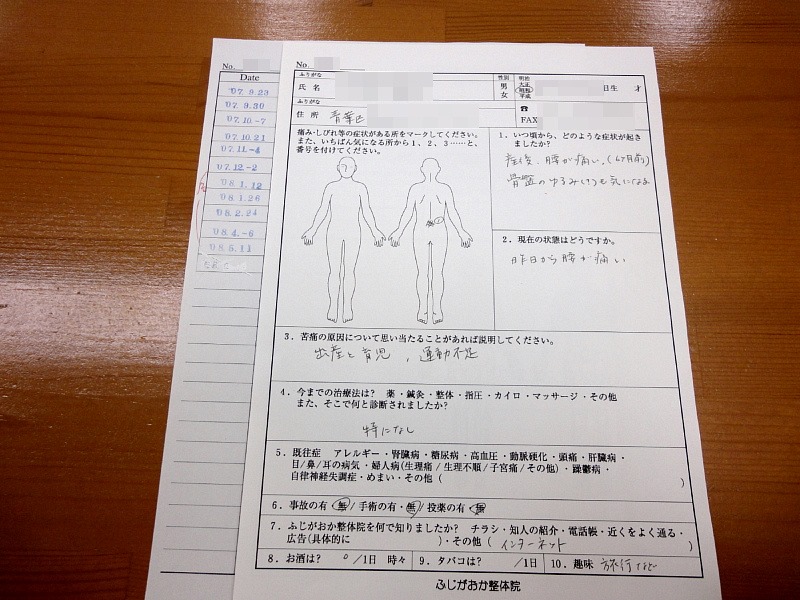 No.
Date
'07. 9. 23
'07. 9. 30
'07. 10. -7
'07. 10. 21
'07. 11. -4
'07. 12. -2
'08. 1. 12
'08. 1. 26
'08. 2. 24
'08. 4. -6
'08. 5. 11
No.
ふりがな
氏 名
性別
男
女
明治
大正
昭和
平成
日生 才
ふりがな
住 所 青葉区
☎
FAX
痛み・しびれ等の症状がある所をマークしてください。
また、いちばん気になる所から1、2、3……と、
番号を付けてください。
1．いつ頃から、どのような症状が起き
ましたか?
産後、腰が痛い。
骨盤のゆるみ(?)も気になる
2．現在の状態はどうですか。
昨日から腰が痛い
3．苦痛の原因について思い当たることがあれば説明してください。
出産と育児、運動不足
4．今までの治療法は? 薬・鍼灸・整体・指圧・カイロ・マッサージ・その他
また、そこで何と診断されましたか?
特になし
5．既往症 アレルギー・腎臓病・糖尿病・高血圧・動脈硬化・頭痛・肝臓病・
目/鼻/耳の病気・婦人病(生理痛/生理不順/子宮痛/その他)・躁鬱病・
自律神経失調症・めまい・その他( )
6．事故の有/無/手術の有・無/投薬の有・無
7．ふじがおか整体院を何で知りましたか? チラシ・知人の紹介・電話帳・近くをよく通る・
広告(具体的に )・その他( インターネット )
8．お酒は? 0 /1日 時々
9．タバコは? /1日
10．趣味 旅行など
ふじがおか整体院